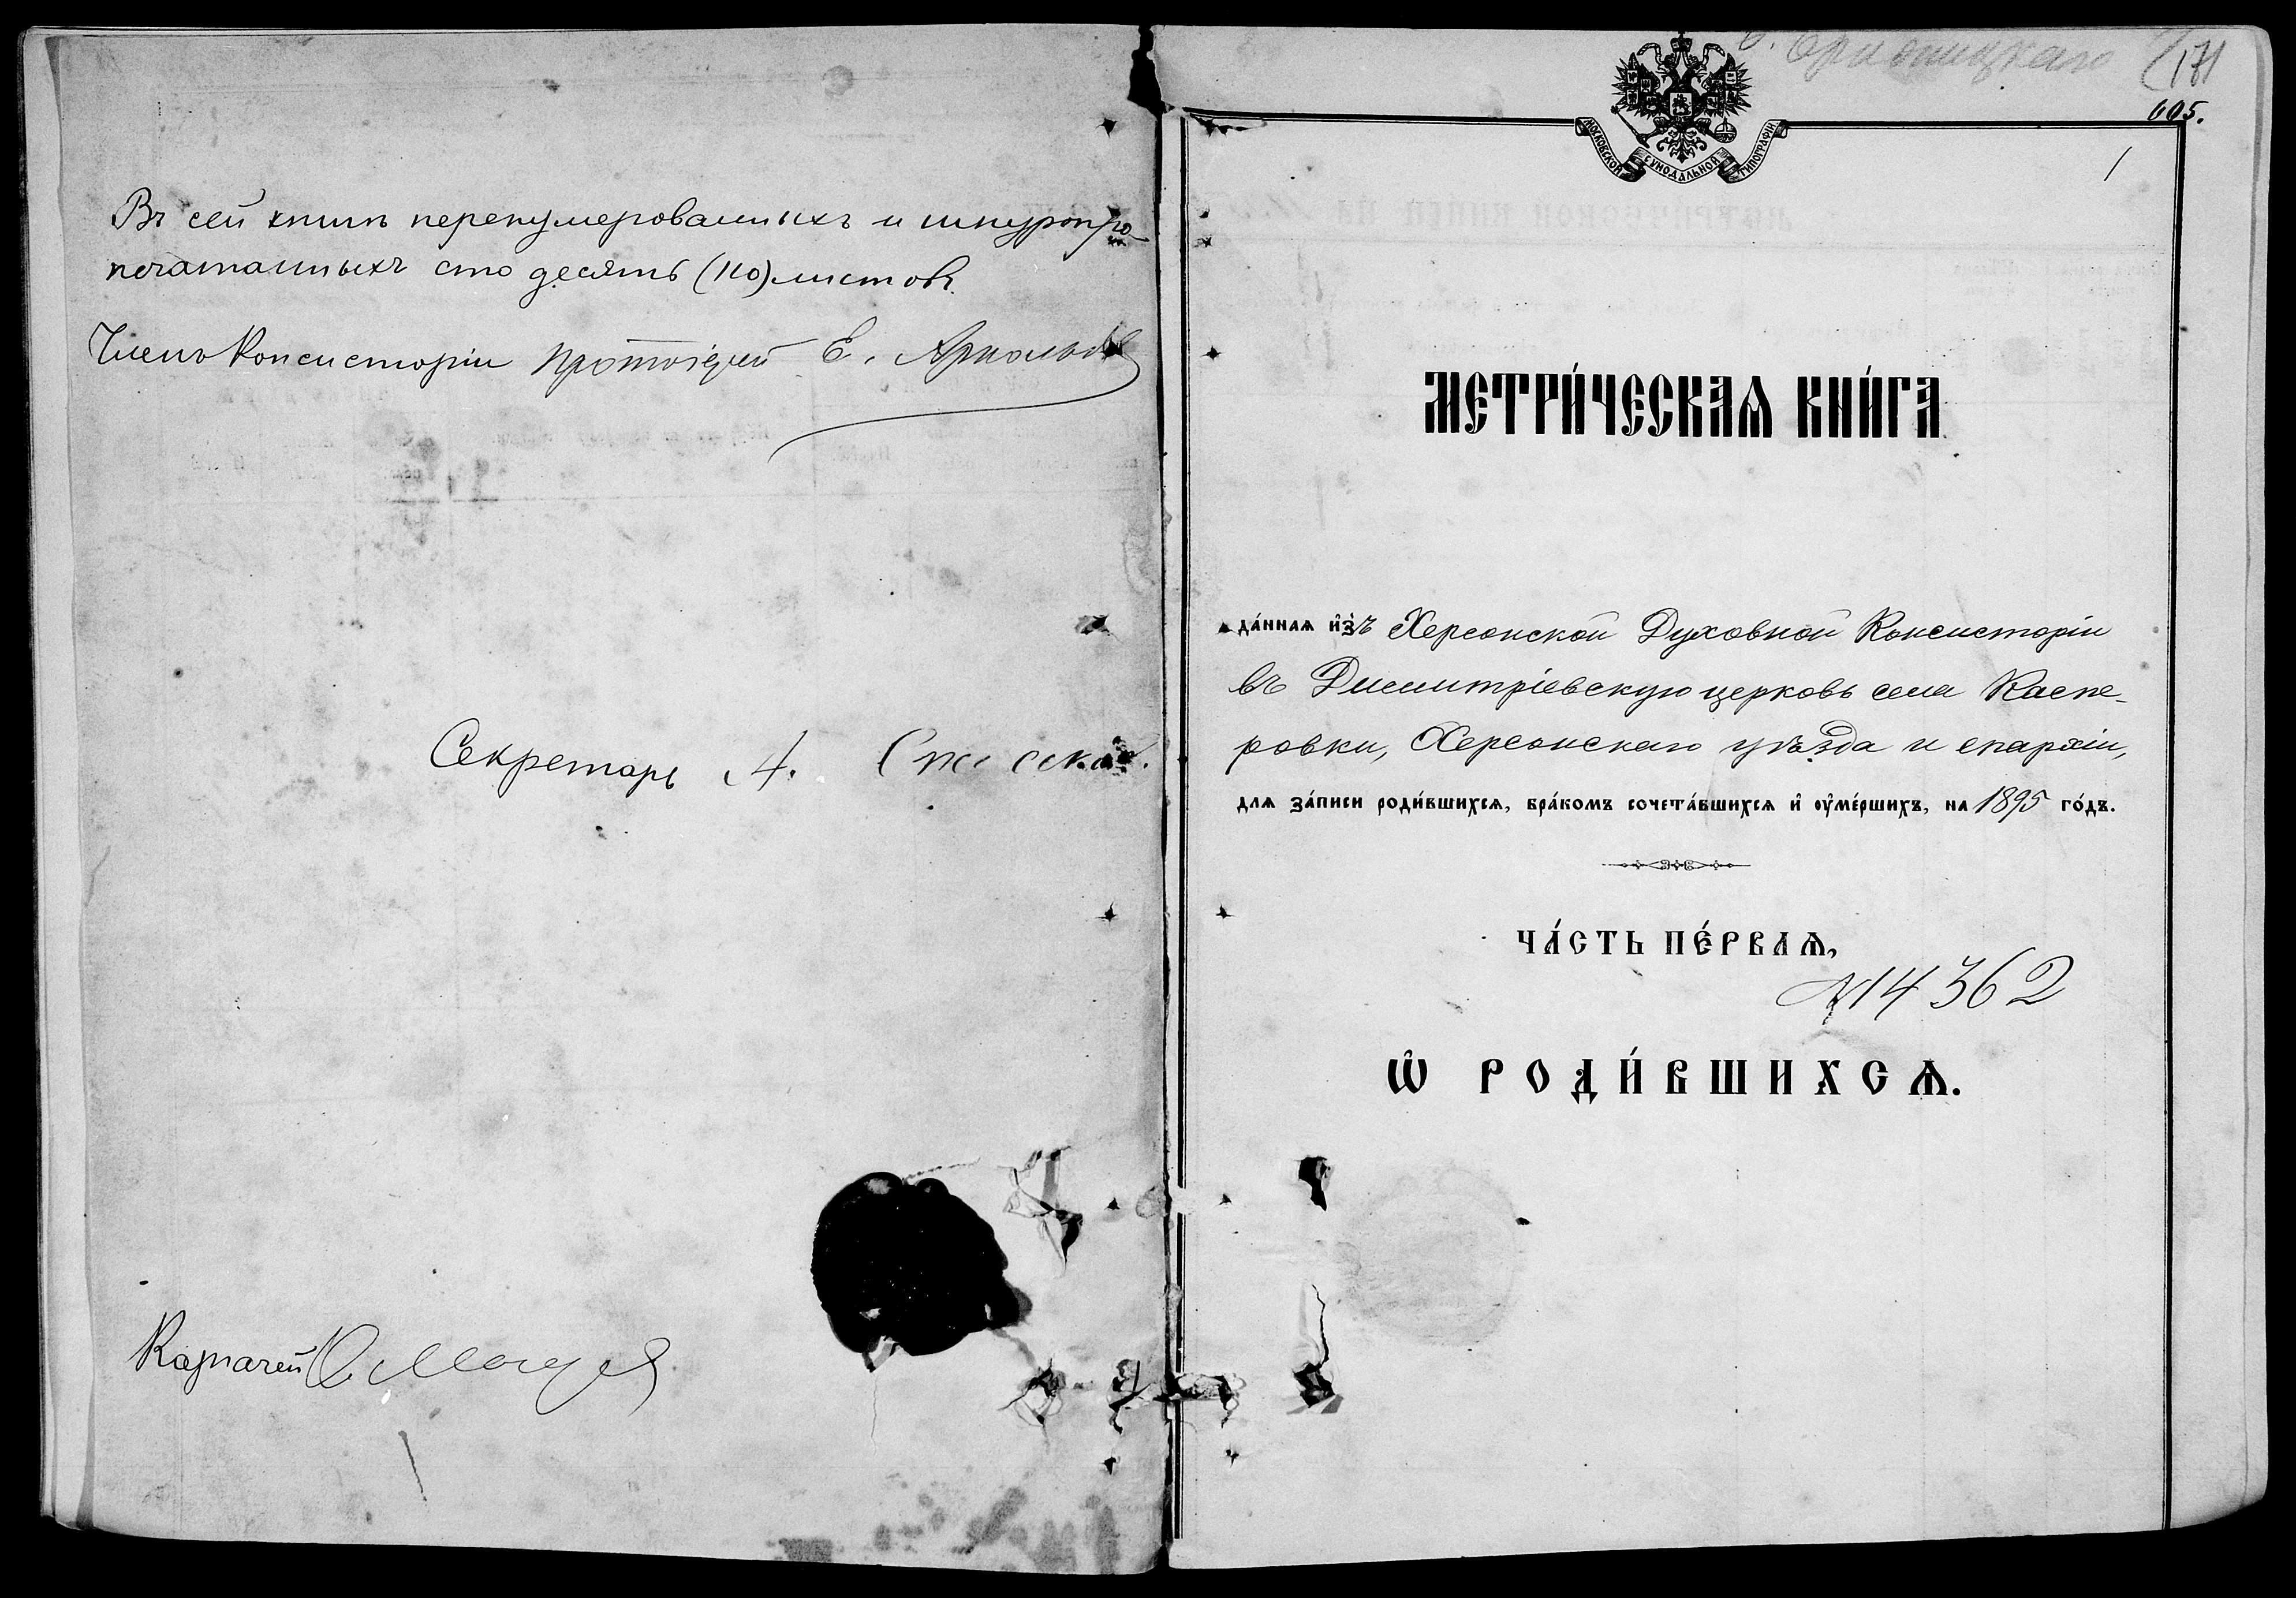 Въ сей книгѣ перенумерованныхъ и шнуропро-
печатанныхъ сто десять (110) листовъ.
Членъ Консисторіи Протоіерей Е. Арнольдовъ
Секретарь А.
Казначей
171
605.
1
МОСКОВСКОЙ СѴНОДАЛЬНОЙ ТИПОГРАФІИ
МЕТРИ́ЧЕСКАѦ КНИ́ГА
да́ннаѧ и҆зъ Херсонской Духовной Консисторіи
въ Димитріевскую церковь села Каспе-
ровки, Херсонскаго уѣзда и епархіи,
длѧ за́писи роди́вшихсѧ, бра́комъ сочета́вшихсѧ и҆ оу҆ме́ршихъ, на 1895 го́дъ.
ЧА́СТЬ ПЕ́РВАѦ,
№ 14362
Ѡ҆ РОДИ́ВШИХСѦ.